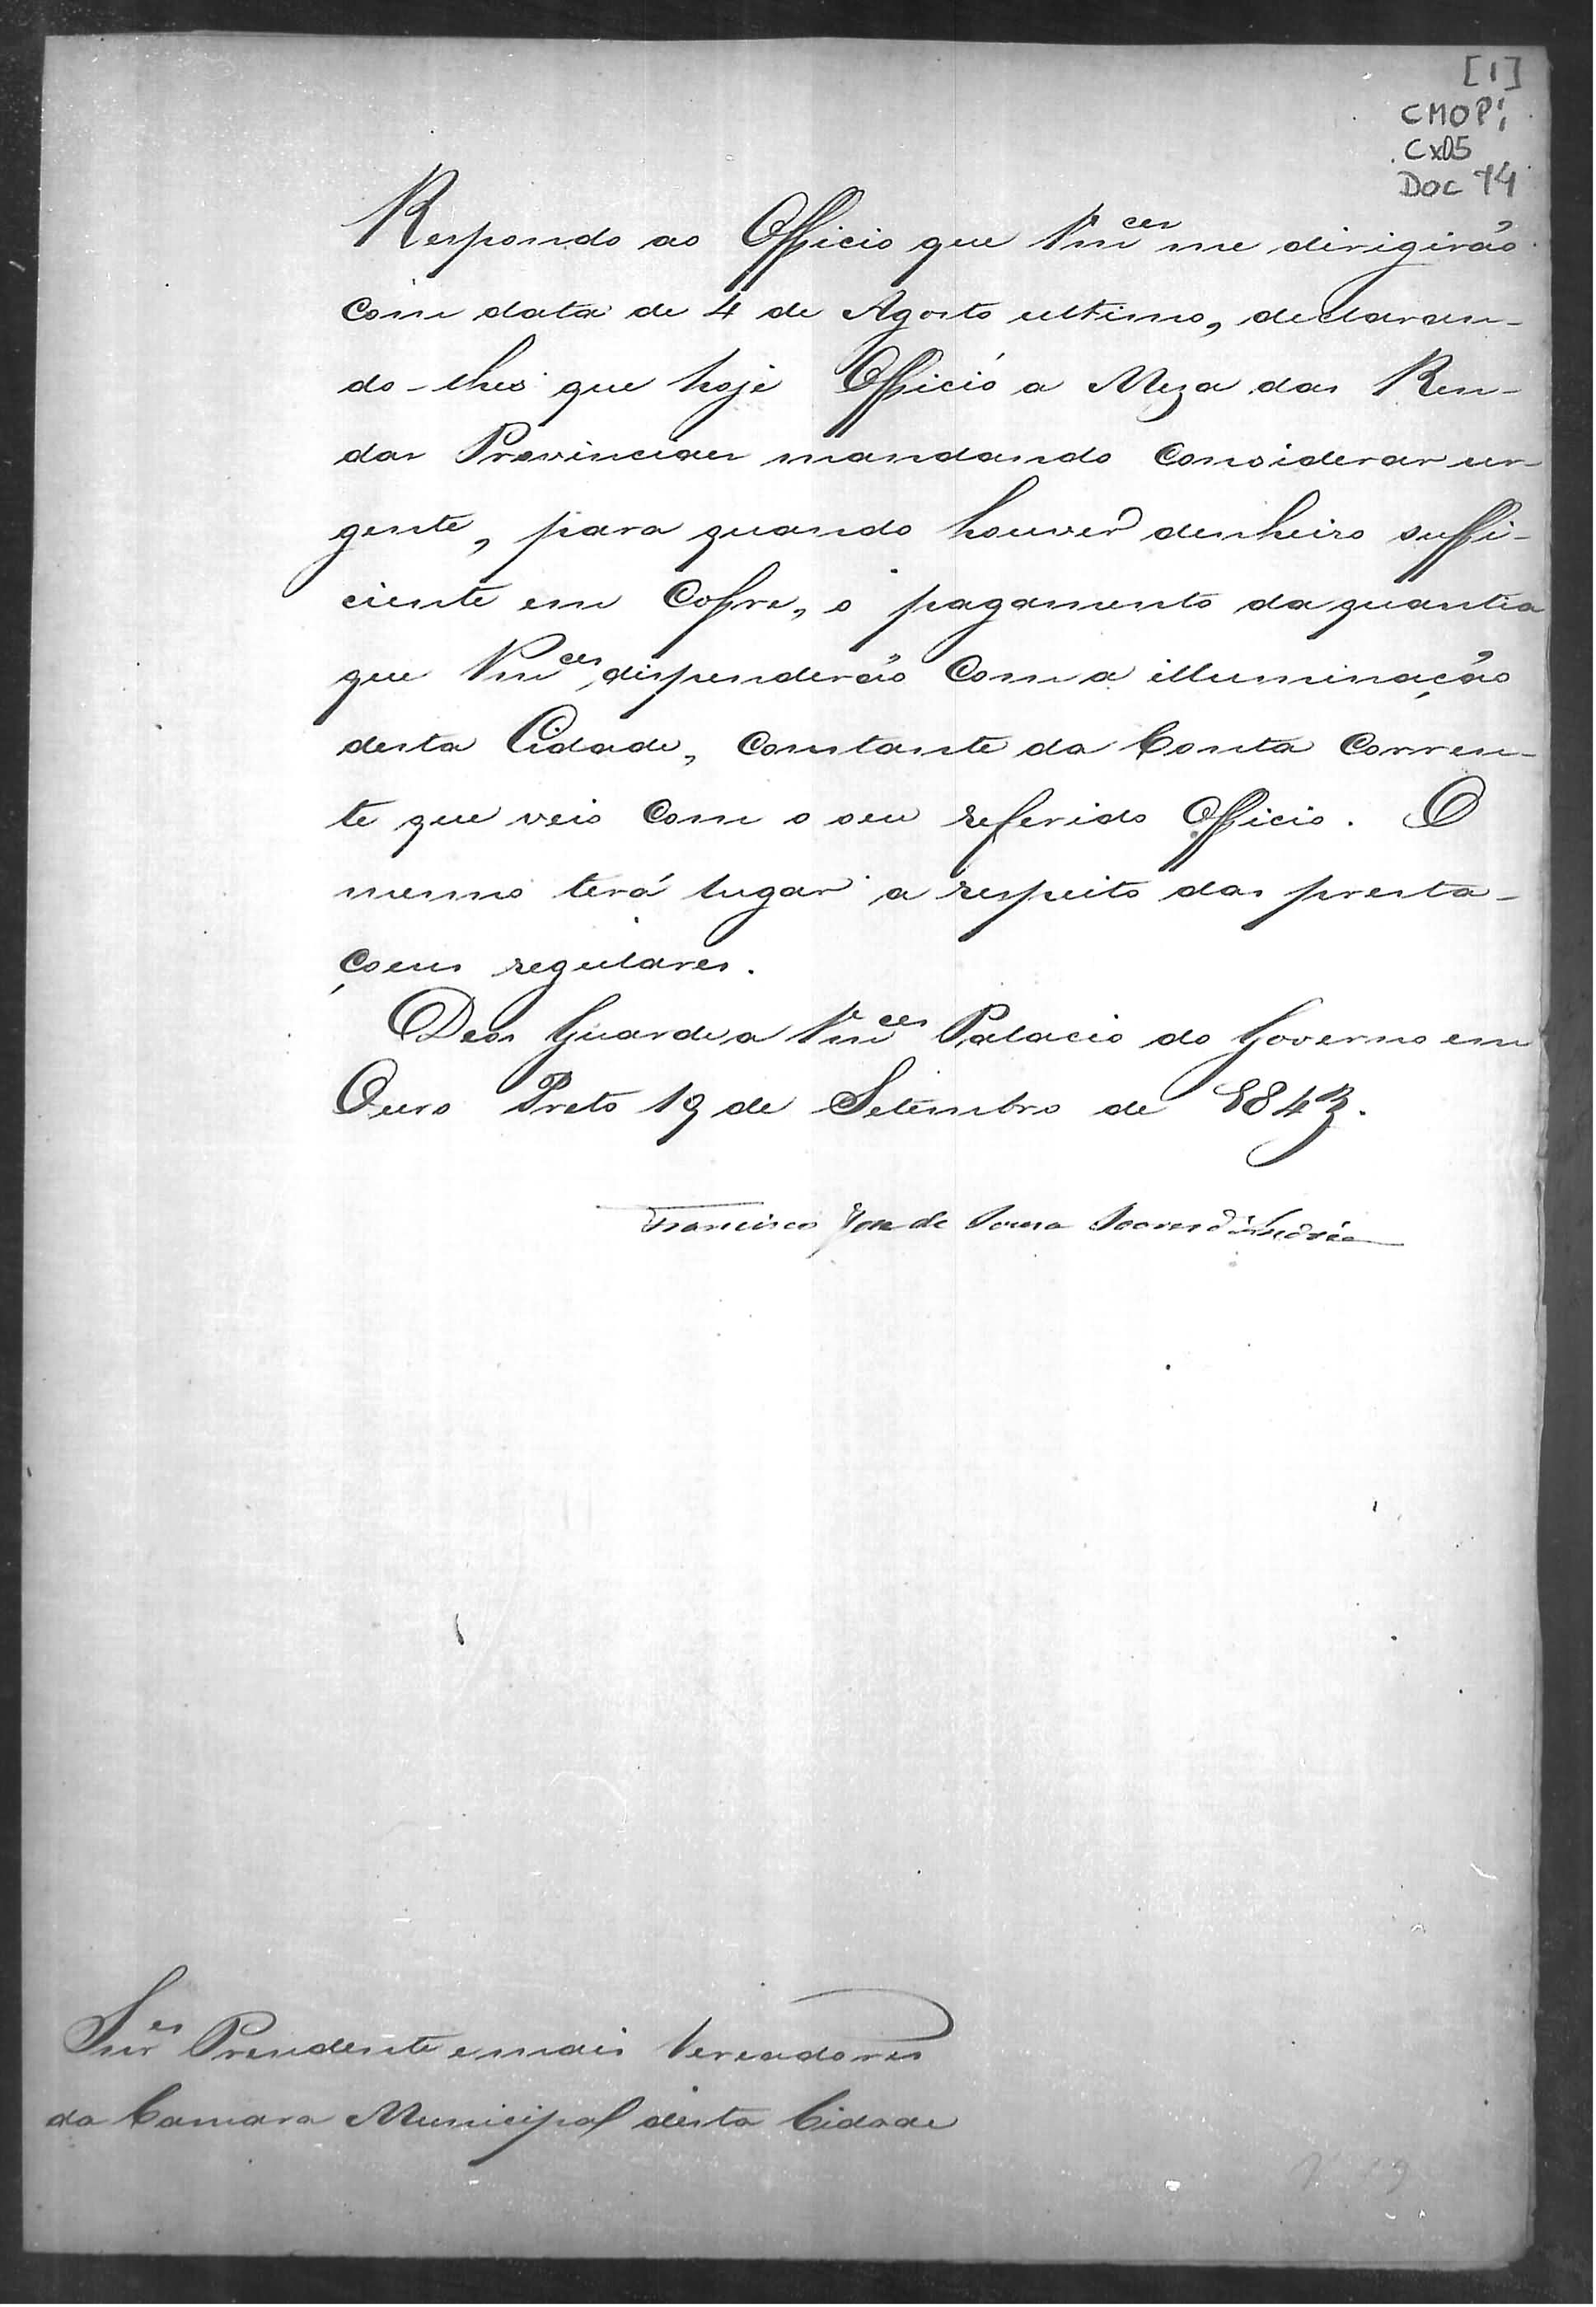 [1]
CMOP;
Cx05
Doc 14
Respondo ao Officio que Vm.ces me dirigirão
com data de 4 de Agosto ultimo, declaran-
do-lhes que hoje Officío a Meza das Ren-
das Provinciaes mandando considerar ur
gente, para quando houver denheiro suffi-
ciente em Cofre, o pagamento da quantia
que Vm.ces dispenderão com a illuminação
desta Cidade, constante da Conta Corren-
te que veio com o seu referido Officio. O
mesmo terá lugar a respeito das presta-
çoens regulares.
Deos Guarde a Vm.ces Palacio do Governo em
Ouro Preto 19 de Setembro de 1843.
Francisco Jose de Souza Soares d'Andréa
Snr.es Presidente e mais Vereadores
da Camara Municipal desta Cidade